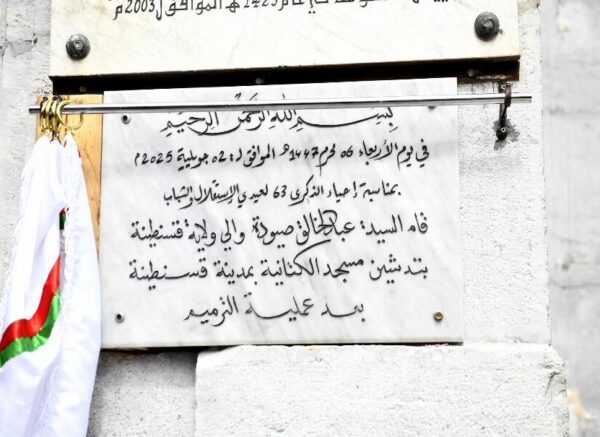 في عام 1423 هـ الموافق ل 2003 م
بسم الله الرحمن الرحيم
في يوم الأربعاء 06 محرم 1447هـ الموافق لـ: 02 جويلية 2025م
بمناسبة إحياء الذكرى 63 لعيدي الإستقلال والشباب
قام السيد عبد الخالق صيودة والي ولاية قسنطينة
بتدشين مسجد الكتانية بمدينة قسنطينة
بعد عملية الترميم